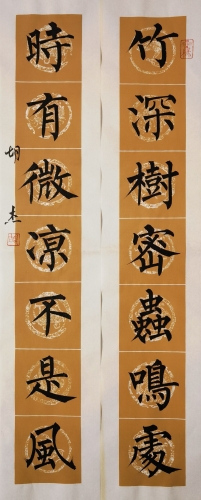 竹深樹密蟲鳴處
時有微凉不是風
胡杰